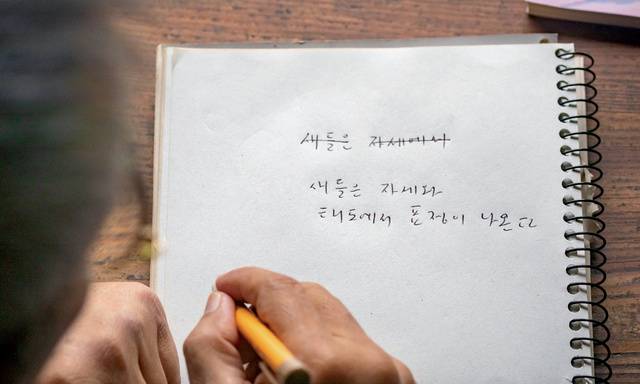 새들은 자세에서
새들은 자세와
태도에서 표정이 나온다